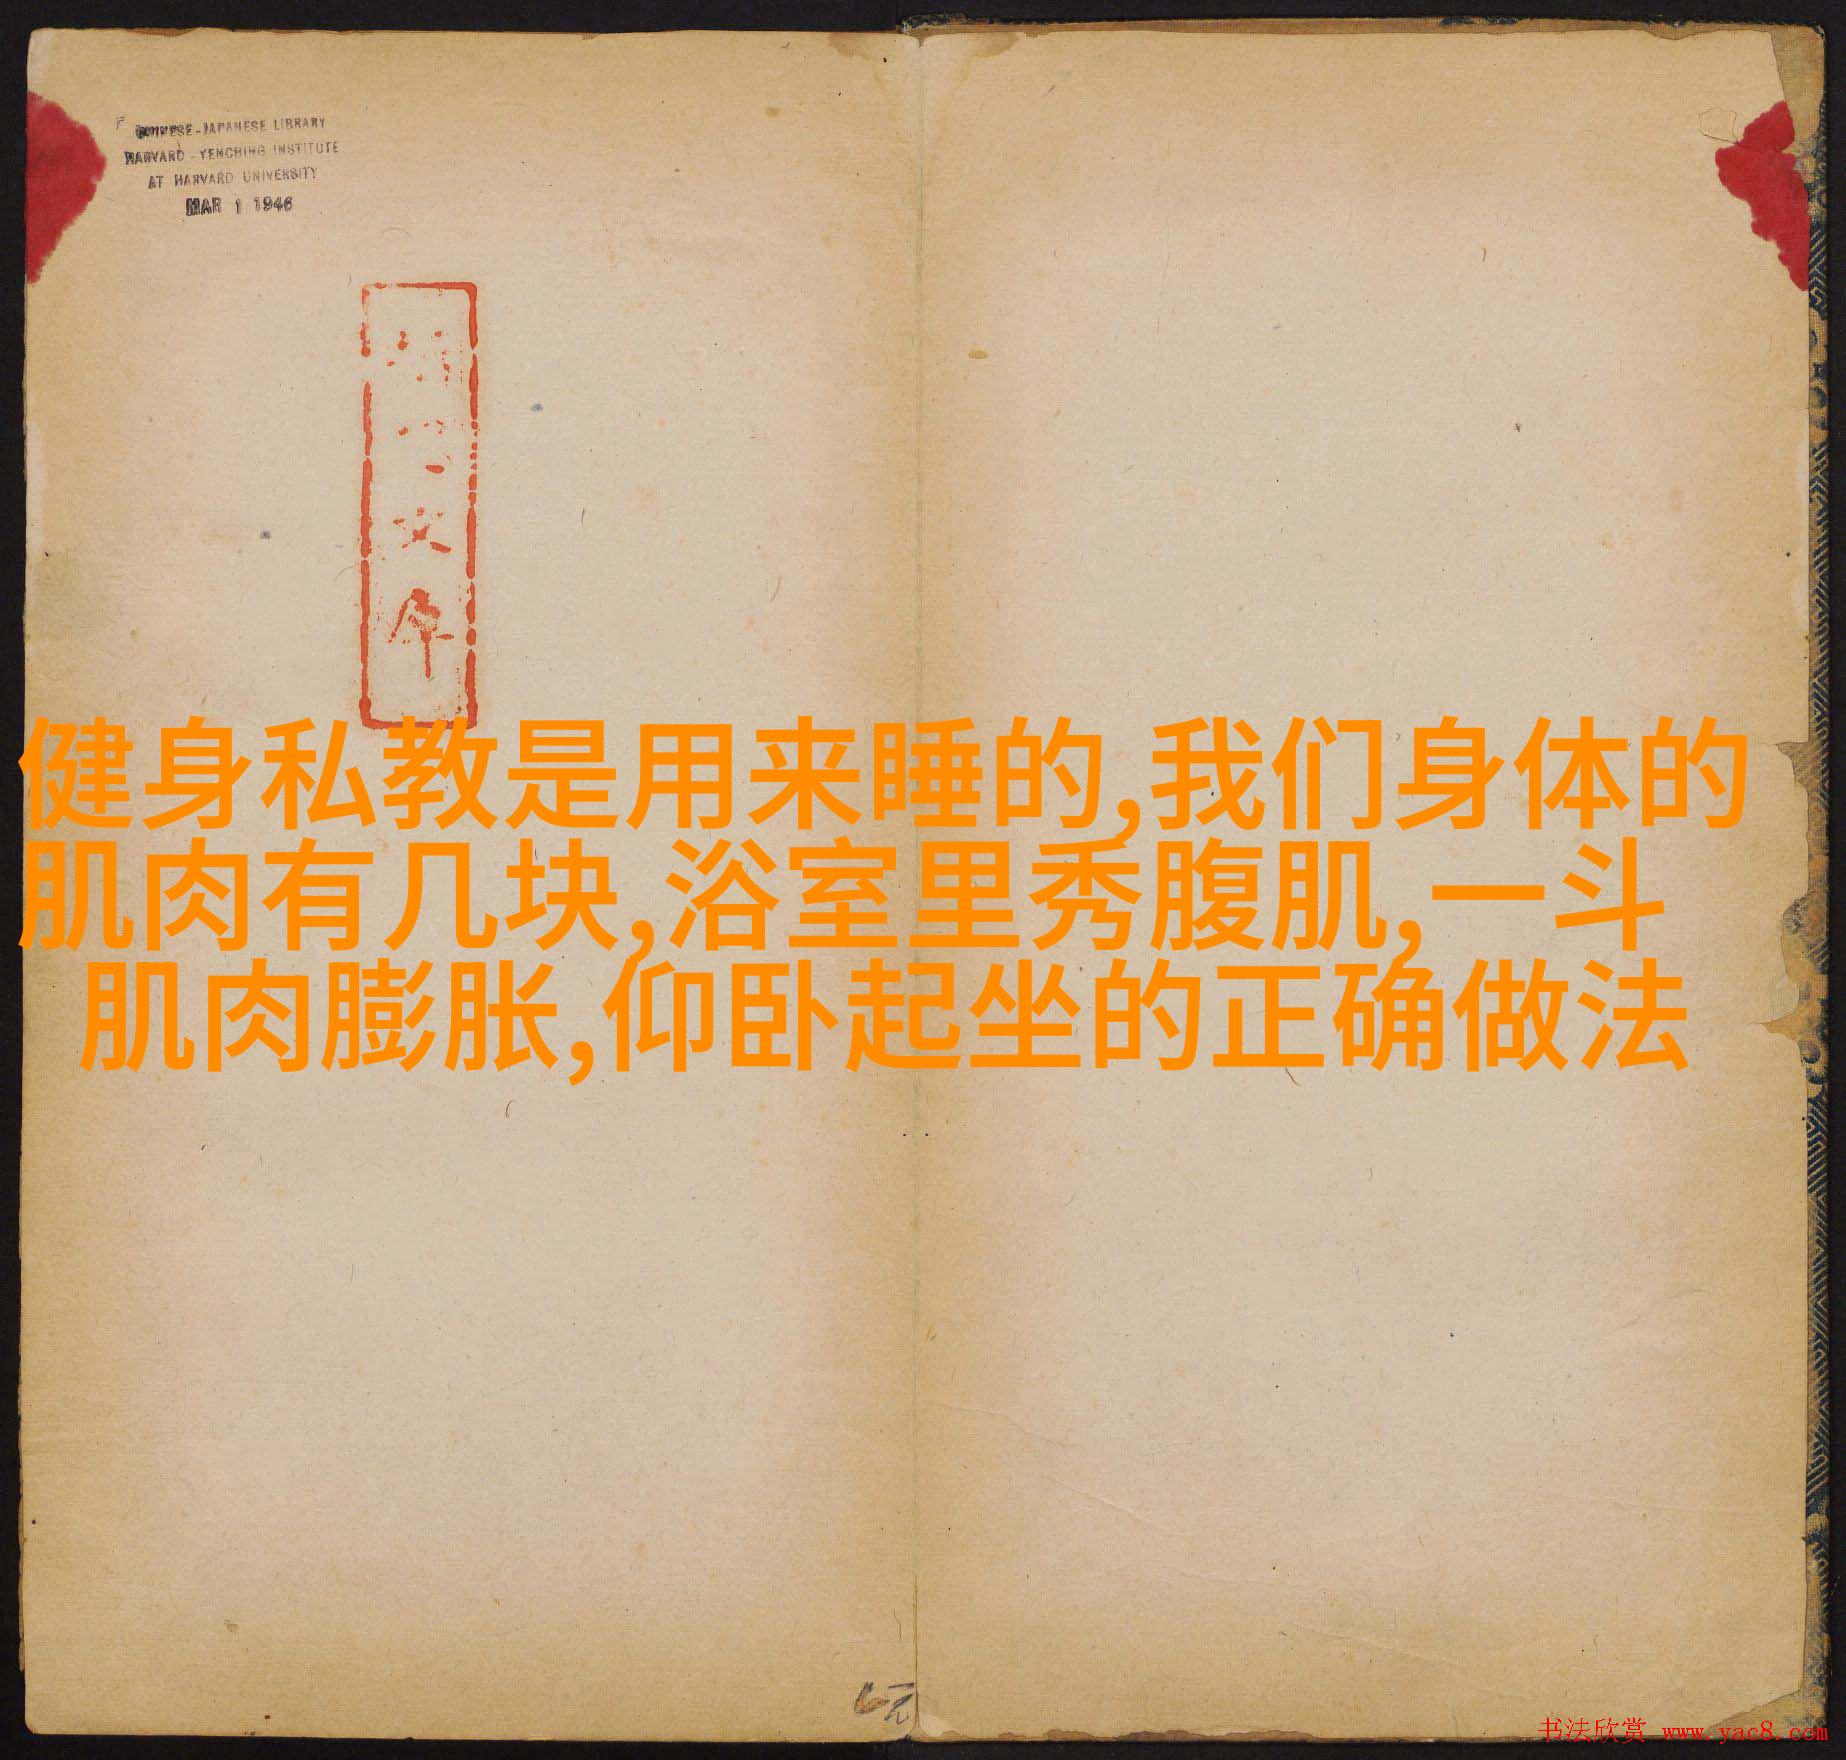 CHINESE-JAPANESE LIBRARY
HARVARD-YENCHING INSTITUTE
AT HARVARD UNIVERSITY
MAR 1 1946
健身私教是用来睡的,我们身体的
肌肉有几块,浴室里秀腹肌,一斗
肌肉膨胀,仰卧起坐的正确做法
元
书法欣赏 www.yac8.com